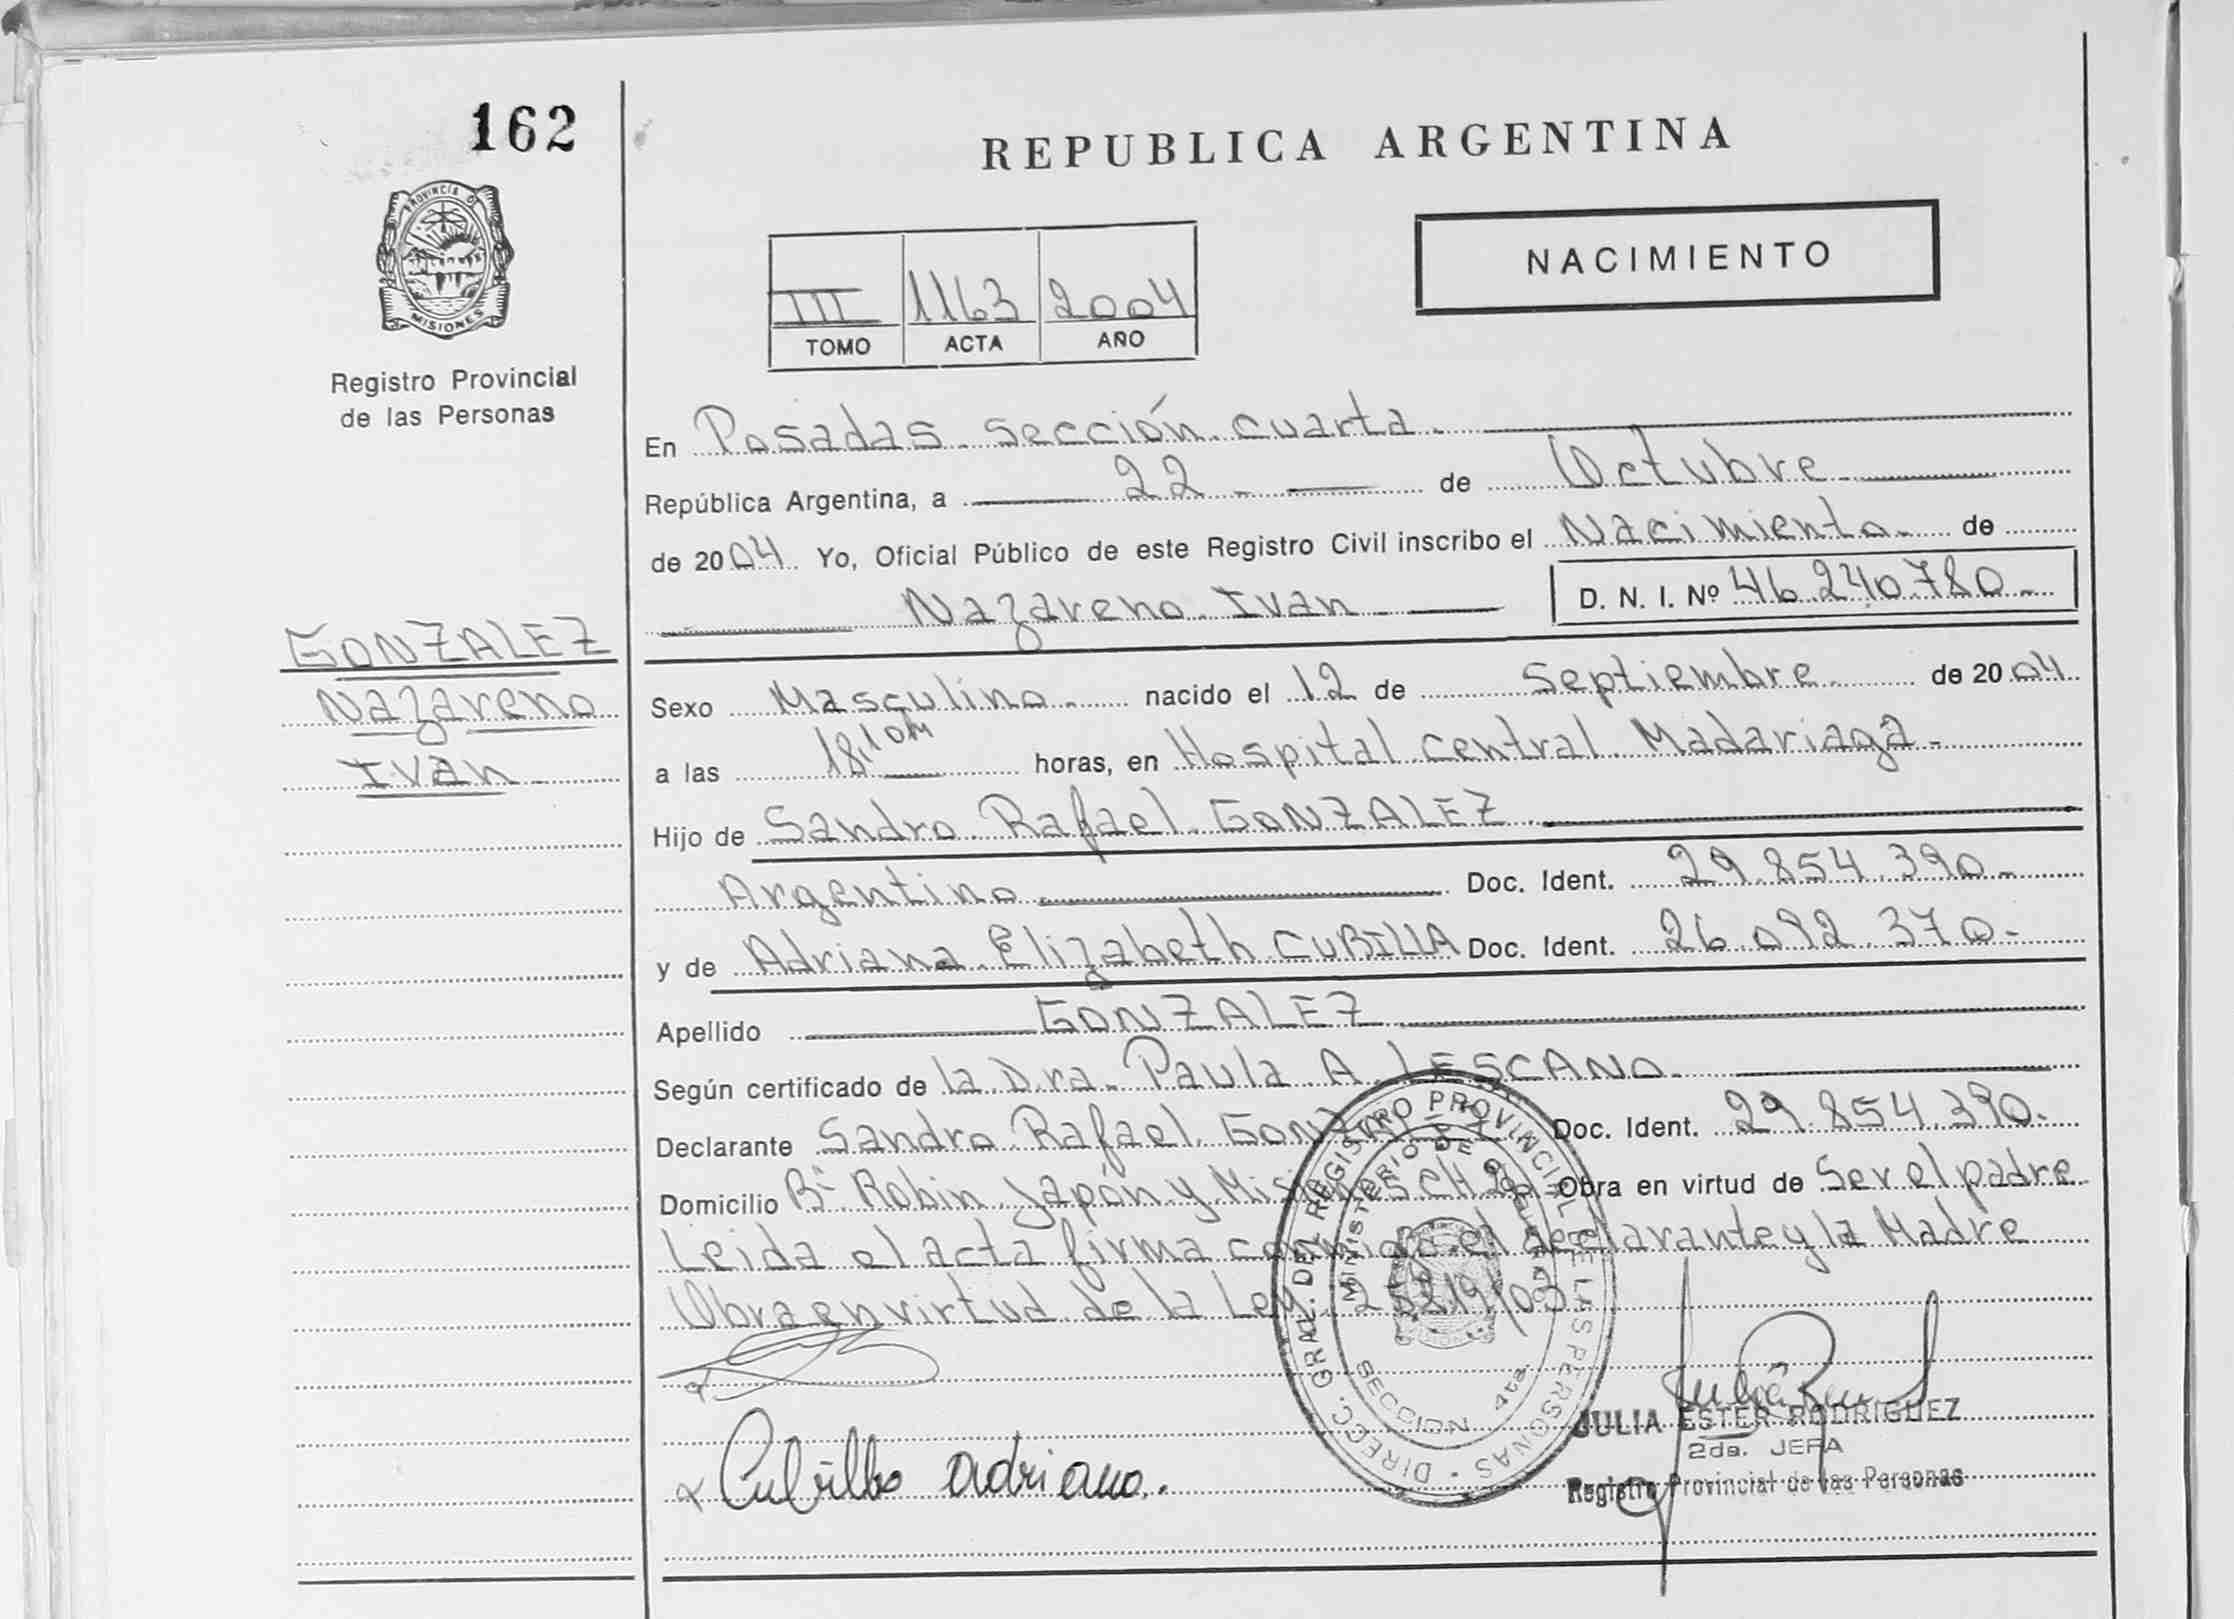 162
REPUBLICA ARGENTINA
PROVINCIA DE
MISIONES
Registro Provincial
de las Personas
NACIMIENTO
III 1163 2004
TOMO ACTA AÑO
En Posadas sección cuarta
República Argentina, a 22 de Octubre
de 2004 Yo, Oficial Público de este Registro Civil inscribo el Nacimiento de
Nazareno Ivan D. N. I. Nº 46.240.780
GONZALEZ
Nazareno
Ivan
Sexo Masculino nacido el 12 de Septiembre de 2004
a las 18,10M horas, en Hospital central Madariaga
Hijo de Sandro Rafael GONZALEZ
Argentino Doc. Ident. 29.854.390
y de Adriana Elizabeth CUBILLA Doc. Ident. 26.092.370
Apellido GONZALEZ
Según certificado de la Dra. Paula A. LESCANO
Declarante Sandro Rafael Doc. Ident. 29.854.390
Domicilio Bº Robin Japón y Obra en virtud de Ser el padre
Leida el acta firma conmigo el declarante y la Madre
Obra en virtud de la Ley
DIRECC. GRAL. DEL REGISTRO PROVINCIAL DE LAS PERSONAS
MINISTERIO DE GOBIERNO
SECCION 4ta.
JULIA ESTER RODRIGUEZ
2da. JEFA
Registro Provincial de las Personas
Cubilla Adriana.